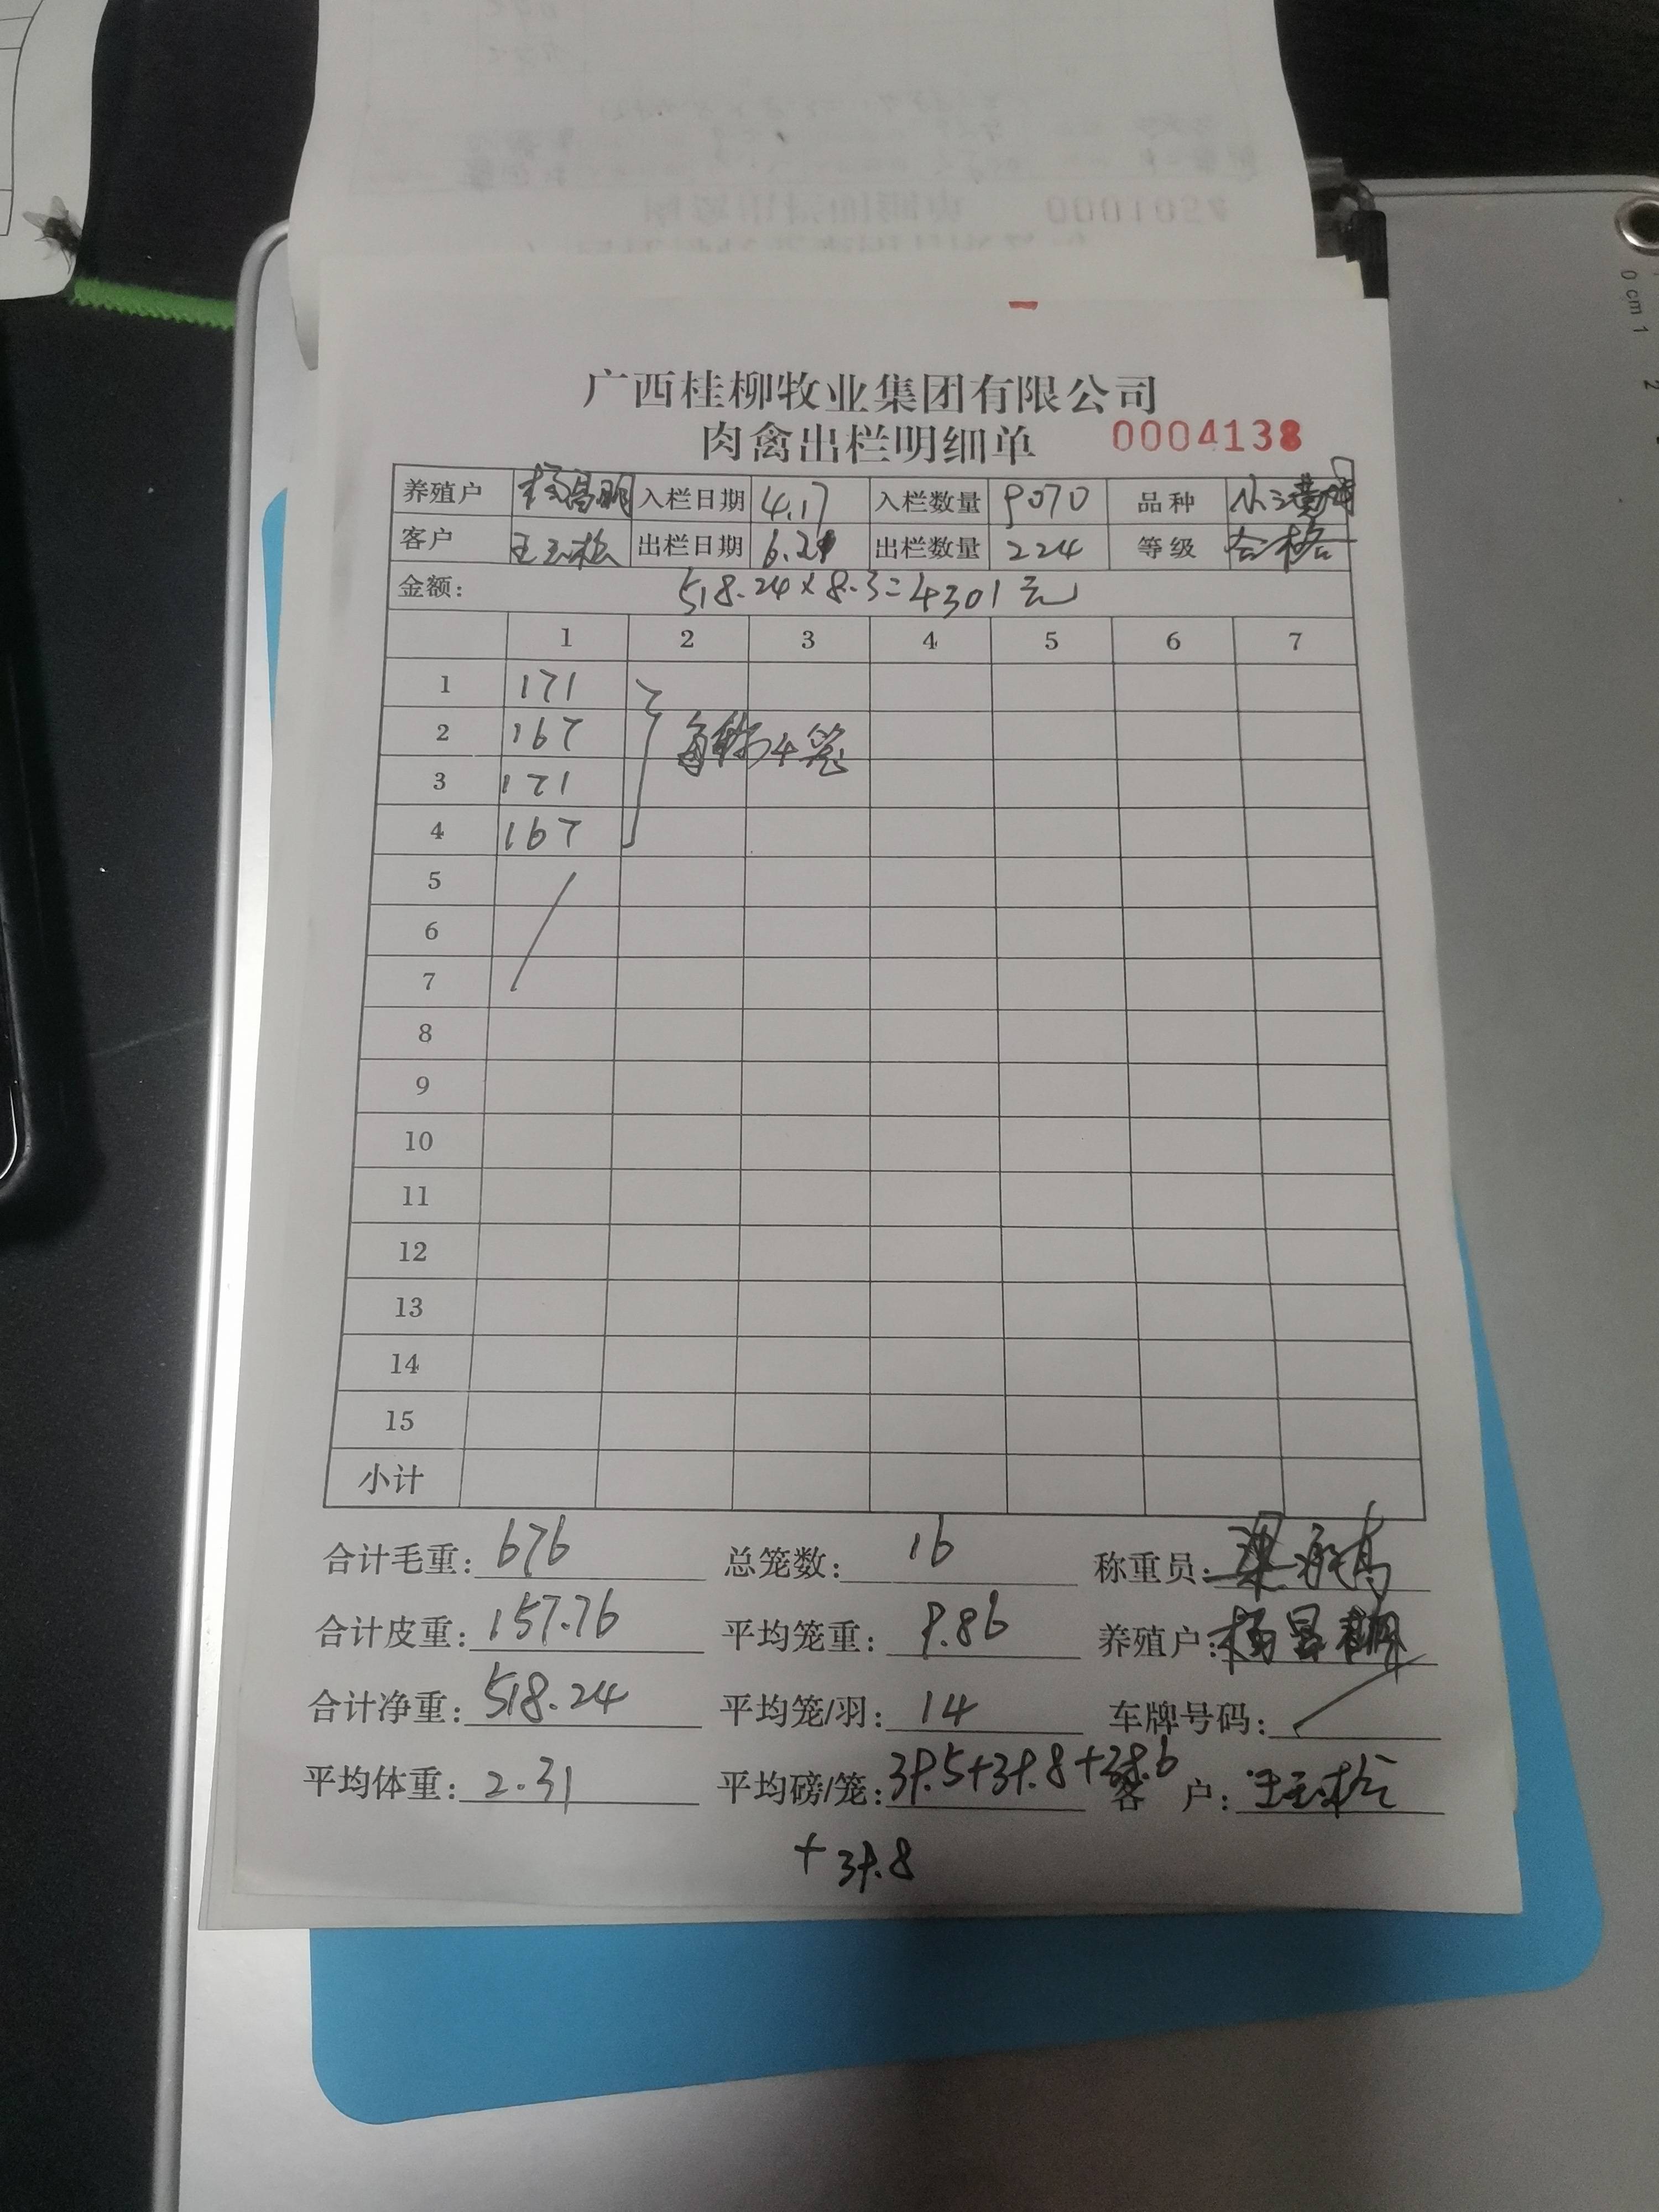 广西桂柳牧业集团有限公司
肉禽出栏明细单 0004138
养殖户 杨昌明 入栏日期 4.17 入栏数量 9070 品种
客户 王玉松 出栏日期 6.21 出栏数量 224 等级 合格
金额: 518.24×8.3=4301元
1 2 3 4 5 6 7
1 171
2 167 每称4笼
3 171
4 167
5
6
7
8
9
10
11
12
13
14
15
小计
合计毛重: 676 总笼数: 16 称重员:
合计皮重: 157.76 平均笼重: 9.86 养殖户: 杨昌明
合计净重: 518.24 平均笼/羽: 14 车牌号码:
平均体重: 2.31 平均磅/笼: 39.5+39.8+38.6 客 户: 王玉松
+39.8
0 cm 1
2